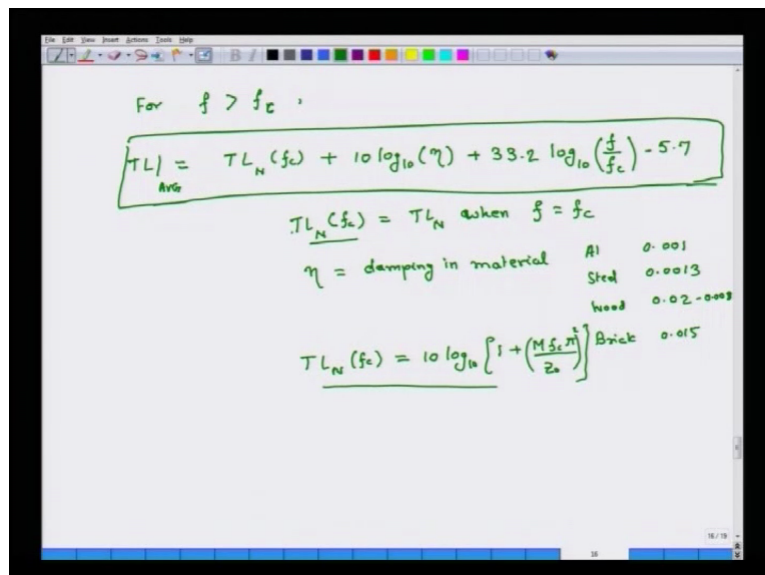 File Edit View Insert Actions Tools Help
For f > fc,
TL|AVG = TL_N (fc) + 10 log₁₀ (η) + 33.2 log₁₀ (f/fc) - 5.7
TL_N (fc) = TL_N when f = fc
η = damping in material
Al 0.001
Steel 0.0013
Wood 0.02 - 0.008
Brick 0.015
TL_N (fc) = 10 log₁₀ [1 + (M fc π / Z₀)²]
16 / 19
16